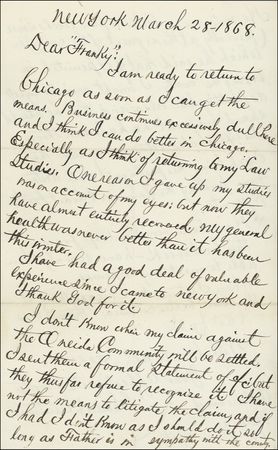 New York March 28-1868.
Dear "Franky":
I am ready to return to
Chicago as soon as I can get the
means. Business continues excessively dull here
and I think I can do better in Chicago.
Especially as I think of returning to my Law
Studies. One reason I gave up my studies
was on account of my eyes; but now they
have almost entirely recovered. My general
health was never better than it has been
this winter.
I have had a good deal of valuable
experience since I came to New York and
I thank God for it
I don't know when my claim against
the Oneida Community will be settled.
I sent them a formal statement of it; but
they thus far refuse to recognize it. I have
not the means to litigate the claim; and if
I had I don't know as I should do it so
long as Father is in sympathy with the comty.